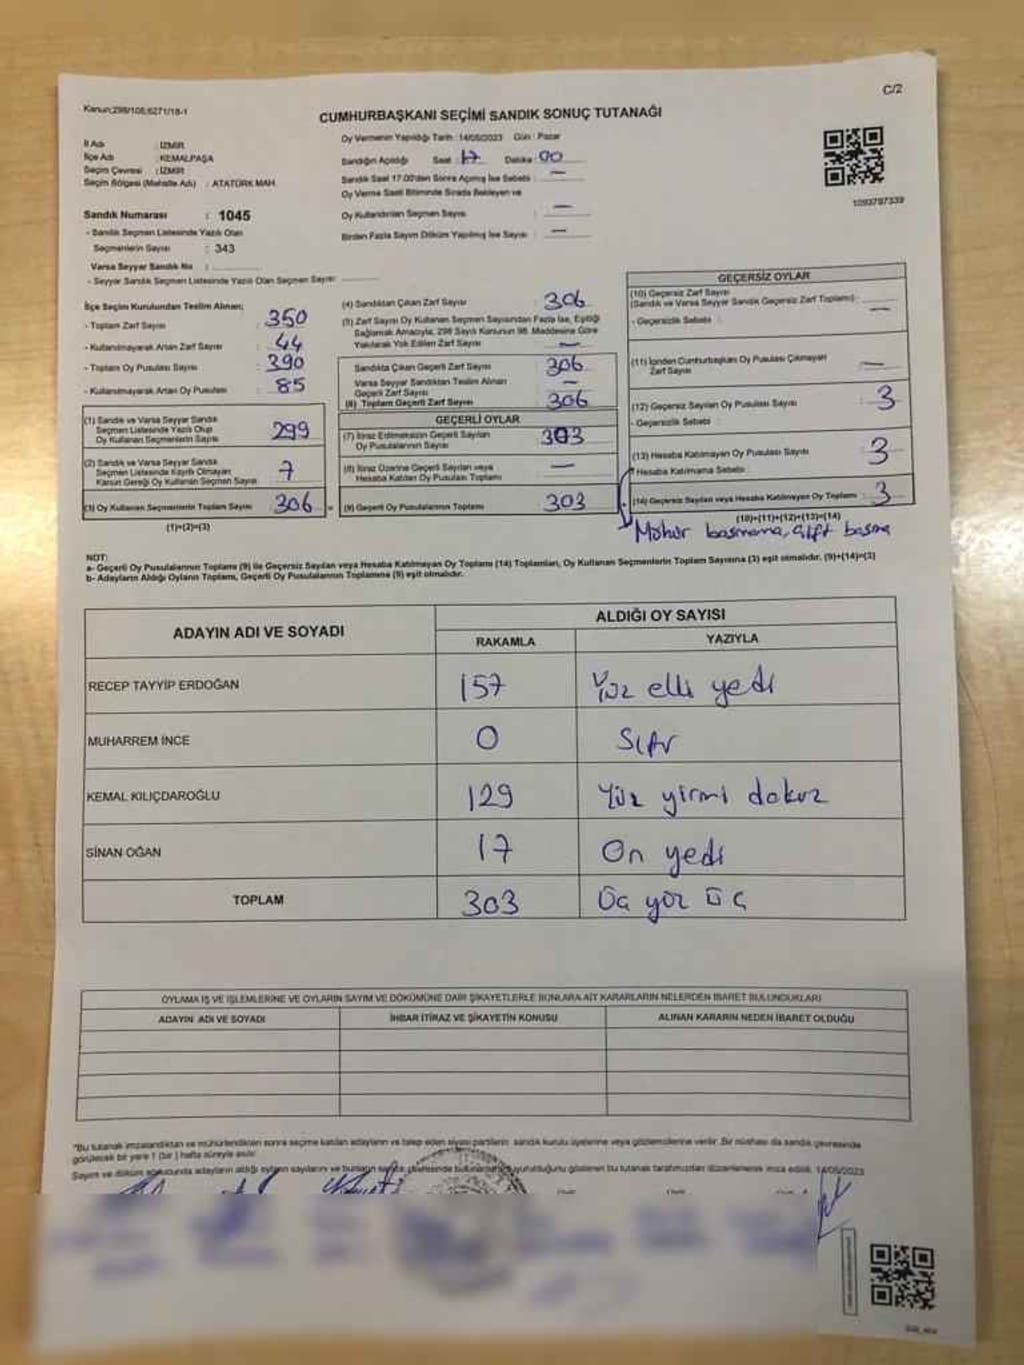 C/2
Kanun:298/108;6271/18-1
CUMHURBAŞKANI SEÇİMİ SANDIK SONUÇ TUTANAĞI
İl Adı : İZMİR
İlçe Adı : KEMALPAŞA
Seçim Çevresi : İZMİR
Seçim Bölgesi (Mahalle Adı) : ATATÜRK MAH.
Oy Vermenin Yapıldığı Tarih : 14/05/2023 Gün : Pazar
Sandığın Açıldığı Saat : 17 Dakika : 00
Sandık Saat 17.00'den Sonra Açılmış İse Sebebi : —
Oy Verme Saati Bitiminde Sırada Bekleyen ve
Oy Kullandırılan Seçmen Sayısı : —
Birden Fazla Sayım Döküm Yapılmış İse Sayısı : —
1093797339
Sandık Numarası : 1045
- Sandık Seçmen Listesinde Yazılı Olan
Seçmenlerin Sayısı : 343
Varsa Seyyar Sandık No :
- Seyyar Sandık Seçmen Listesinde Yazılı Olan Seçmen Sayısı:
İlçe Seçim Kurulundan Teslim Alınan;
- Toplam Zarf Sayısı : 350
- Kullanılmayarak Artan Zarf Sayısı : 44
- Toplam Oy Pusulası Sayısı : 390
- Kullanılmayarak Artan Oy Pusulası : 85
(1) Sandık ve Varsa Seyyar Sandık
Seçmen Listesinde Yazılı Olup
Oy Kullanan Seçmenlerin Sayısı 299
(2) Sandık ve Varsa Seyyar Sandık
Seçmen Listesinde Kayıtlı Olmayan
Kanun Gereği Oy Kullanan Seçmen Sayısı 7
(3) Oy Kullanan Seçmenlerin Toplam Sayısı 306
(1)+(2)=(3)
(4) Sandıktan Çıkan Zarf Sayısı : 306
(5) Zarf Sayısı Oy Kullanan Seçmen Sayısından Fazla İse, Eşitliği
Sağlamak Amacıyla, 298 Sayılı Kanunun 98. Maddesine Göre
Yakılarak Yok Edilen Zarf Sayısı : —
Sandıkta Çıkan Geçerli Zarf Sayısı : 306
Varsa Seyyar Sandıktan Teslim Alınan
Geçerli Zarf Sayısı : —
(6) Toplam Geçerli Zarf Sayısı : 306
GEÇERLİ OYLAR
(7) İtiraz Edilmeksizin Geçerli Sayılan
Oy Pusulalarının Sayısı : 303
(8) İtiraz Üzerine Geçerli Sayılan veya
Hesaba Katılan Oy Pusulası Toplamı : —
(9) Geçerli Oy Pusulalarının Toplamı : 303
GEÇERSİZ OYLAR
(10) Geçersiz Zarf Sayısı
(Sandık ve Varsa Seyyar Sandık Geçersiz Zarf Toplamı) :
- Geçersizlik Sebebi :
(11) İçinden Cumhurbaşkanı Oy Pusulası Çıkmayan
Zarf Sayısı : —
(12) Geçersiz Sayılan Oy Pusulası Sayısı : 3
- Geçersizlik Sebebi :
(13) Hesaba Katılmayan Oy Pusulası Sayısı : 3
- Hesaba Katılmama Sebebi :
(14) Geçersiz Sayılan veya Hesaba Katılmayan Oy Toplamı : 3
(10)+(11)+(12)+(13)=(14)
Mühür basmama, çift basma
NOT:
a- Geçerli Oy Pusulalarının Toplamı (9) ile Geçersiz Sayılan veya Hesaba Katılmayan Oy Toplamı (14) Toplamları, Oy Kullanan Seçmenlerin Toplam Sayısına (3) eşit olmalıdır. (9)+(14)=(3)
b- Adayların Aldığı Oyların Toplamı, Geçerli Oy Pusulalarının Toplamına (9) eşit olmalıdır.
ADAYIN ADI VE SOYADI ALDIĞI OY SAYISI
RAKAMLA YAZIYLA
RECEP TAYYİP ERDOĞAN 157 Yüz elli yedi
MUHARREM İNCE 0 Sıfır
KEMAL KILIÇDAROĞLU 129 Yüz yirmi dokuz
SİNAN OĞAN 17 On yedi
TOPLAM 303 Üç yüz üç
OYLAMA İŞ VE İŞLEMLERİNE VE OYLARIN SAYIM VE DÖKÜMÜNE DAİR ŞİKAYETLERLE BUNLARA AİT KARARLARIN NELERDEN İBARET BULUNDUKLARI
ADAYIN ADI VE SOYADI İHBAR İTİRAZ VE ŞİKAYETİN KONUSU ALINAN KARARIN NEDEN İBARET OLDUĞU
"Bu tutanak imzalandıktan ve mühürlendikten sonra seçime katılan adayların ve talep eden siyasi partilerin sandık kurulu üyelerine veya gözlemcilerine verilir. Bir nüshası da sandık çevresinde
görülecek bir yere 1 (bir) hafta süreyle asılır.
Sayım ve döküm sonucunda adayların aldığı oyların sayılarını ve bunların sandık çevresinde bulunan duyurulduğunu gösteren bu tutanak tarafımızdan düzenlenerek imza edildi. 14/05/2023